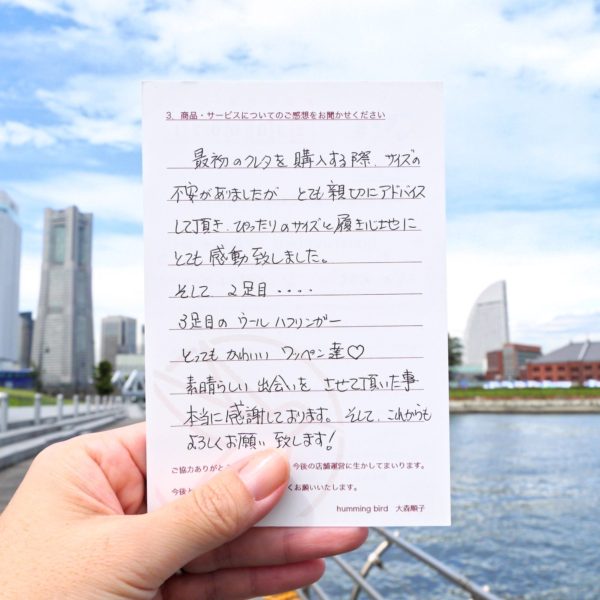 3. 商品・サービスについてのご感想をお聞かせください
最初のクレタを購入する際、サイズの
不安がありましたが とても親切にアドバイス
して頂き、ぴったりのサイズと履き心地に
とても感動致しました。
そして、2足目・・・・
3足目の ウール ハフリンガー
とっても かわいい ワッペン達♡
素晴らしい 出会いを させて頂いた事
本当に感謝しております。そして、これからも
よろしくお願い致します!
ご協力ありがと 今後の店舗運営に生かしてまいります。
今後と くお願いいたします。
humming bird 大森順子